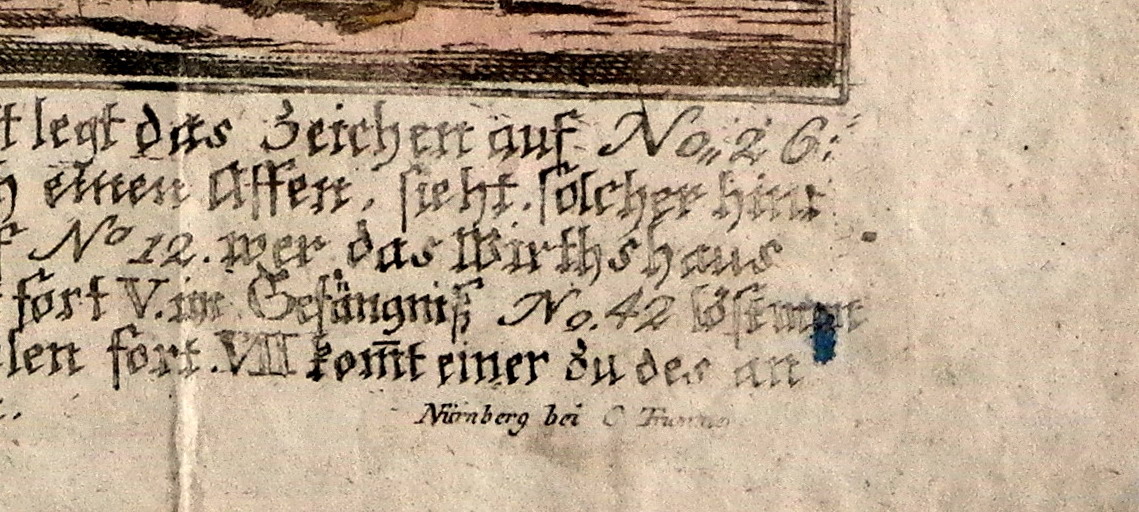 t legt das Zeichen auf No„ 26:
einen Affen, sieht. solcher hint
No 12. wer das Wirthshaus
fort V. im Gefängniß No. 42 löst man
len fort. VII kom̅t einer zu des an
Nürnberg bei C